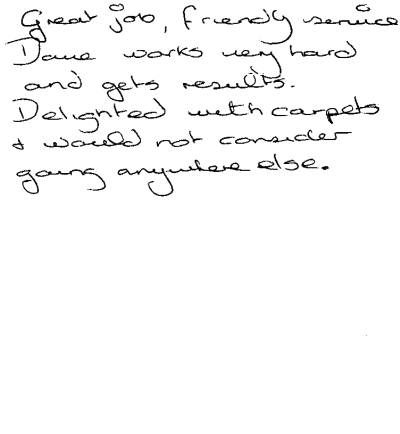 Great job, friendly service
Dave works very hard
and gets results.
Delighted with carpets
+ would not consider
going anywhere else.